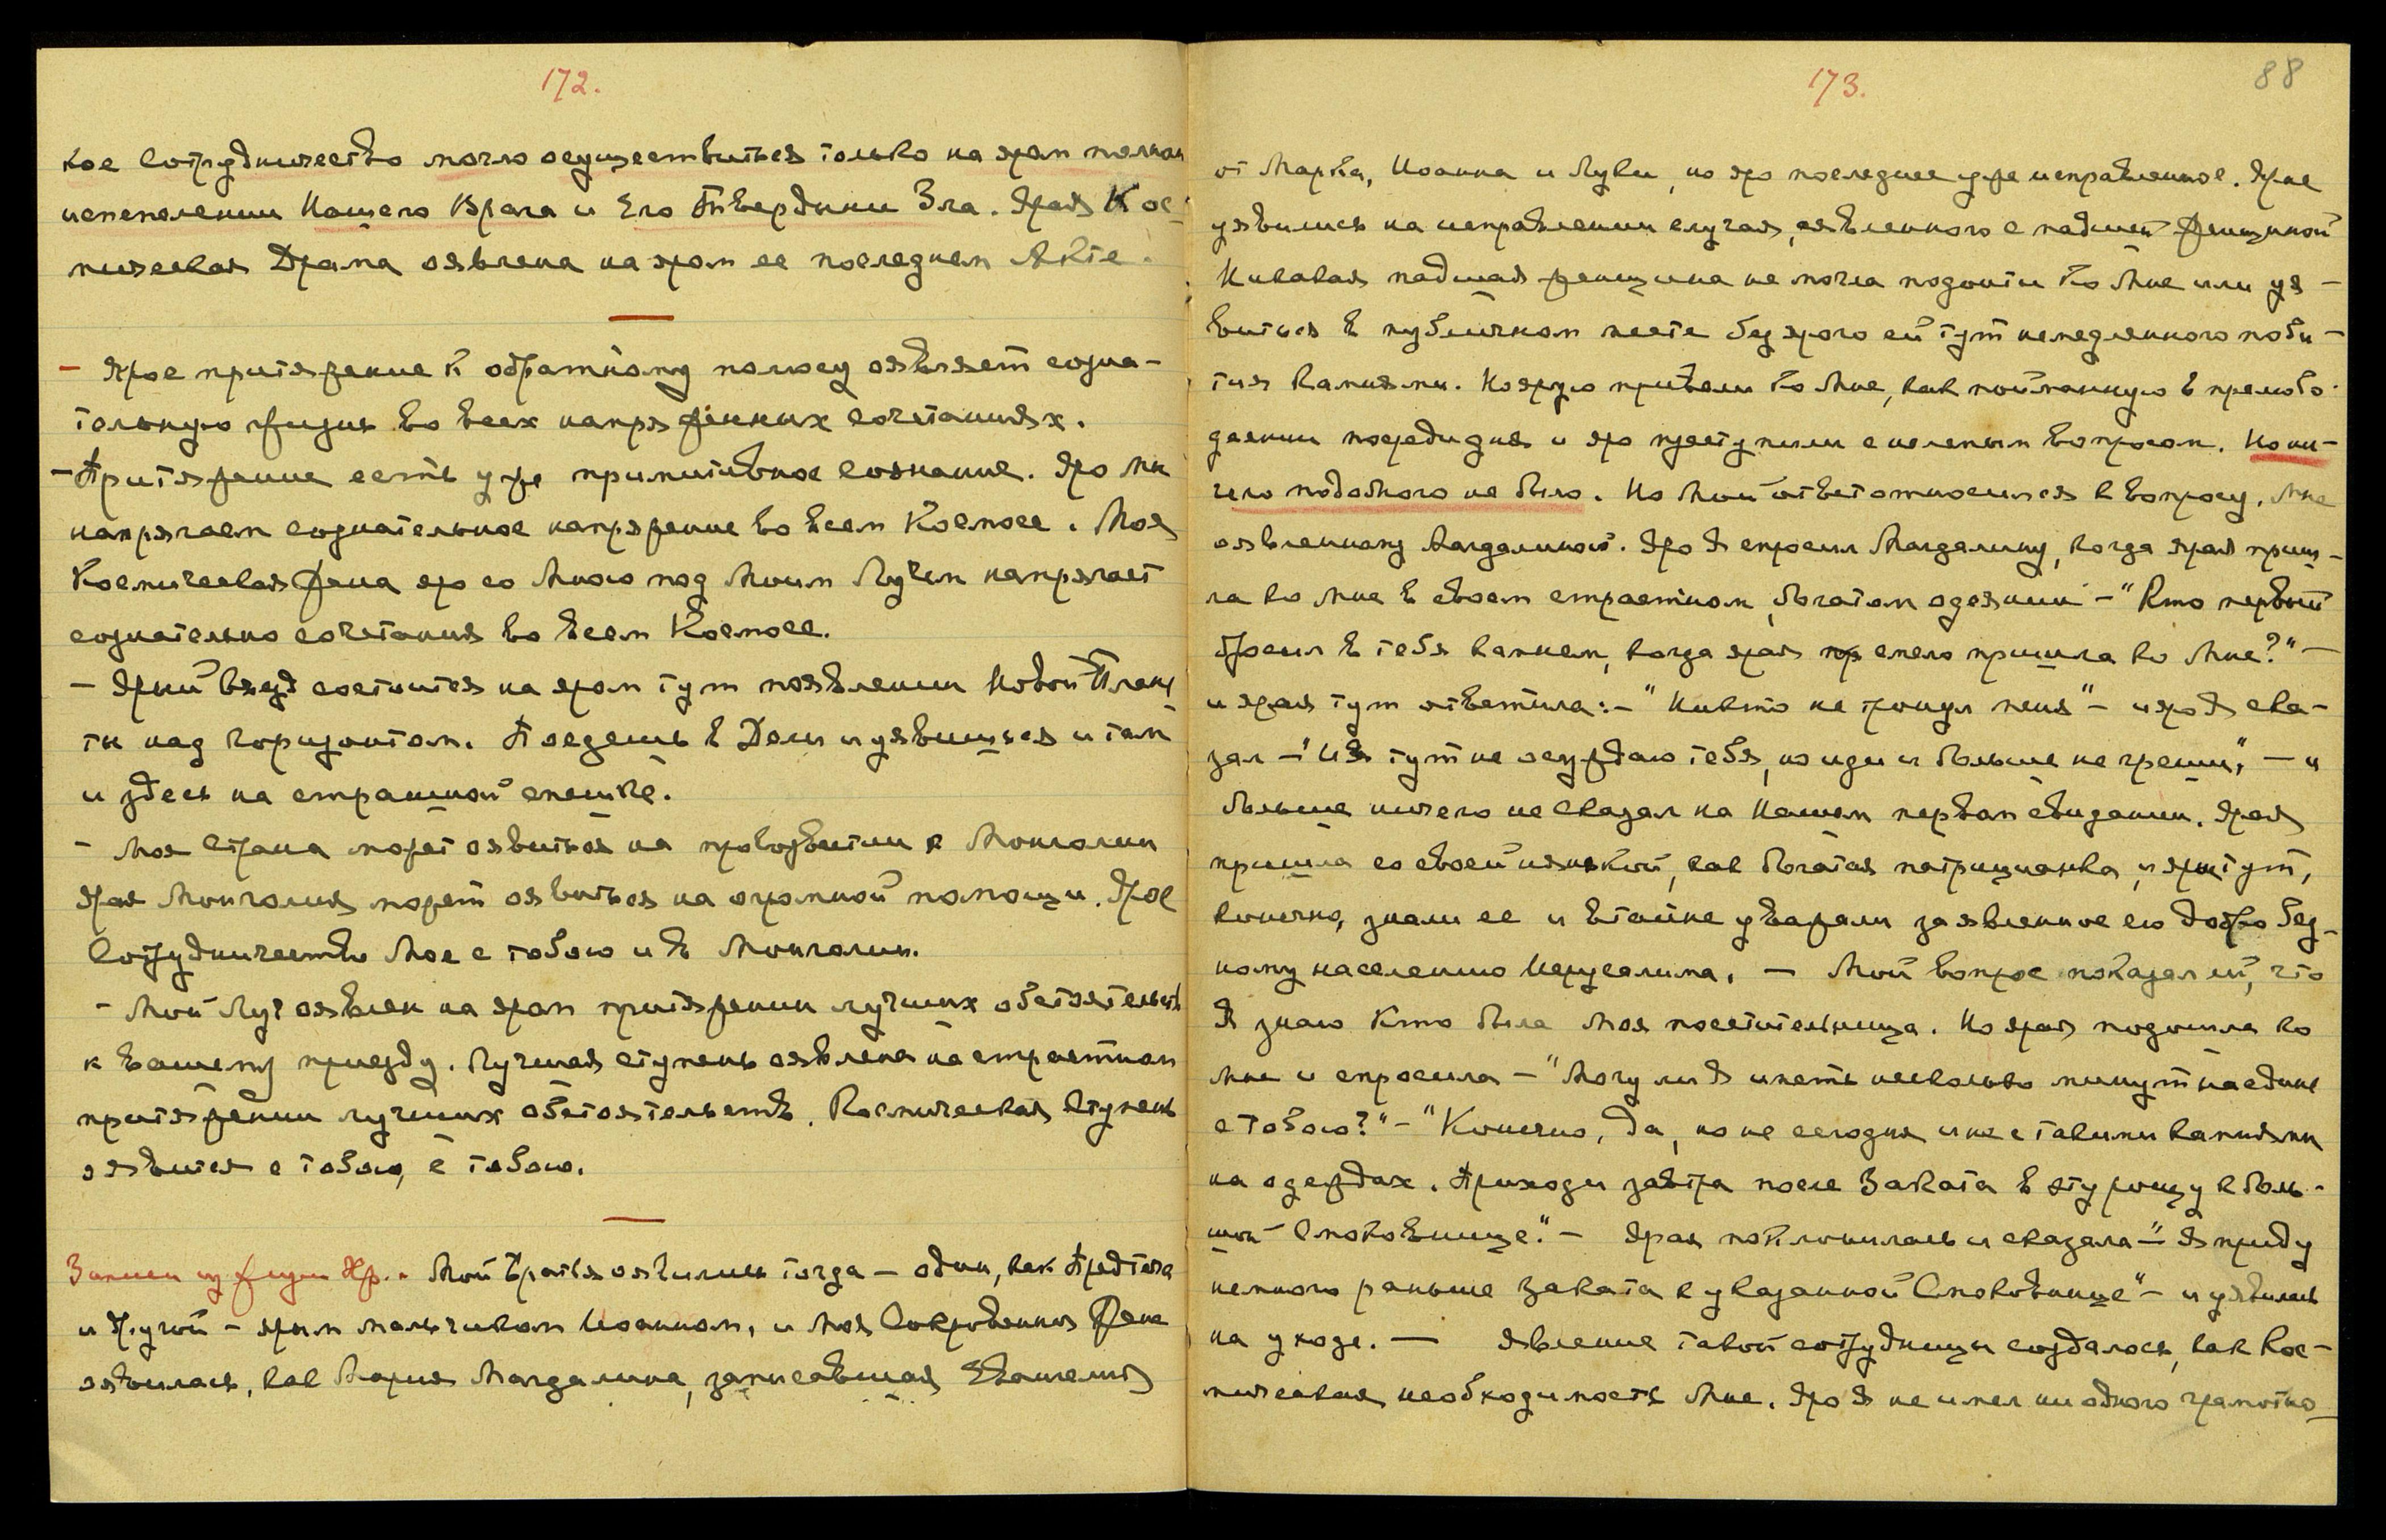 172.
кое Сотрудничество могло осуществиться только на яром полном
испепелении Нашего Врага и Его Твердыни Зла. Ярая Кос-
мическая Драма оявлена на яром ее последнем Акте.
- Ярое притяжение к обратному полюсу оявляет созна-
тельную жизнь во всех напряженных сочетаниях.
- Притяжение есть уже примитивное сознание. Яро Мы
напрягаем сознательное напряжение во всем Космосе. Моя
Космическая Жена яро со Мною под Моим Лучем напрягает
сознательно сочетания во всем Космосе.
- Ярый въезд состоится на яром тут появлении Новой Плане-
ты над горизонтом. Поедешь в Дели и уявишься и там
и здесь на страшной спешке.
- Моя Страна может оявиться на процветании в Монголии
Ярая Монголия может оявиться на огромной помощи. Ярое
Сотрудничество Мое с тобою и в Монголии.
- Мой Луч оявлен на яром притяжении лучших обстоятельств
к вашему приезду. Лучшая ступень оявлена на страстном
притяжении лучших обстоятельств. Космическая Ступень
оявится с тобою, с тобою.
Записи из жизни Хр. - Мои Братья оявились тогда - один, как Предтеча
и Другой - ярым мальчиком Иоанном, и Моя Сокровенная Жена
оявилась, как Мария Магдалина, записавшая Евангелия
173.
88
от Марка, Иоанна и Луки, но яро последнее уже исправленное. Ярые
уявились на исправлении случая, оявленного с падшей женщиной
Никакая падшая женщина не могла подойти ко Мне или уя-
виться в публичном месте без ярого ей тут немедленного поби-
тия камнями. Но ярую привели ко Мне, как пойманную в прелюбо-
деянии посреди дня и яро приступили с нелепым вопросом. Но ни-
чего подобного не было. Но Мой ответ относился к вопросу, Мне
оявленному Магдалиной. Яро Я спросил Магдалину, когда ярая приш-
ла ко Мне в своем страстном, богатом одеянии - "Кто первый
бросил в тебя камнем, когда ярая смело пришла ко Мне?" -
и ярая тут ответила: - "Никто не тронул меня" - и яро Я ска-
зал - "И Я тут не осуждаю тебя, но иди и больше не греши", - и
больше ничего не сказал на Нашем первом свидании. Ярая
пришла со своей нянькой, как богатая патрицианка, и ярые тут,
конечно, знали ее и втайне уважали за явленное ею добро бед-
ному населению Иерусалима. - Мой вопрос показал ей, что
Я знаю Кто была Моя посетительница. Но ярая подошла ко
Мне и спросила - "Могу ли Я иметь несколько минут наедине
с Тобою?" - "Конечно, да, но не сегодня и не с такими камнями
на одеждах. Приходи завтра после Заката в эту рощу к боль-
шой Смоковнице." - Ярая поклонилась и сказала - "Я приду
немного раньше заката к указанной Смоковнице" - и уявилась
на уходе. - Явление такой сотрудницы создалось, как Кос-
мическая необходимость Мне. Яро Я не имел ни одного грамотно-